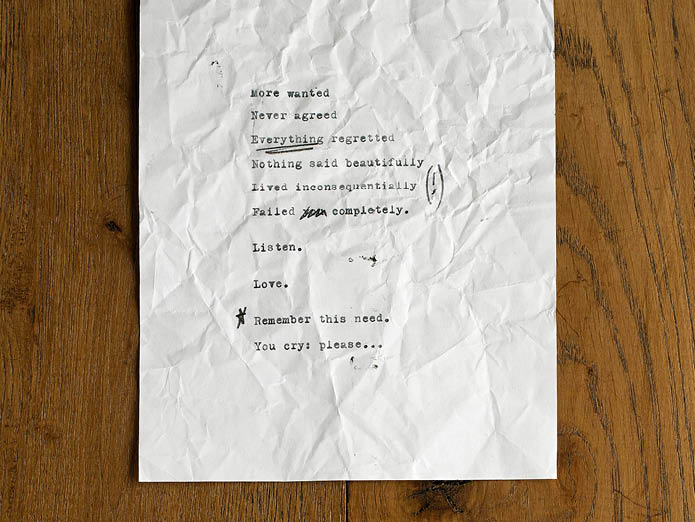 More wanted
Never agreed
Everything regretted
Nothing said beautifully
Lived inconsequentially (!)
Failed completely.
Listen.
Love.
* Remember this need.
You cry: please...